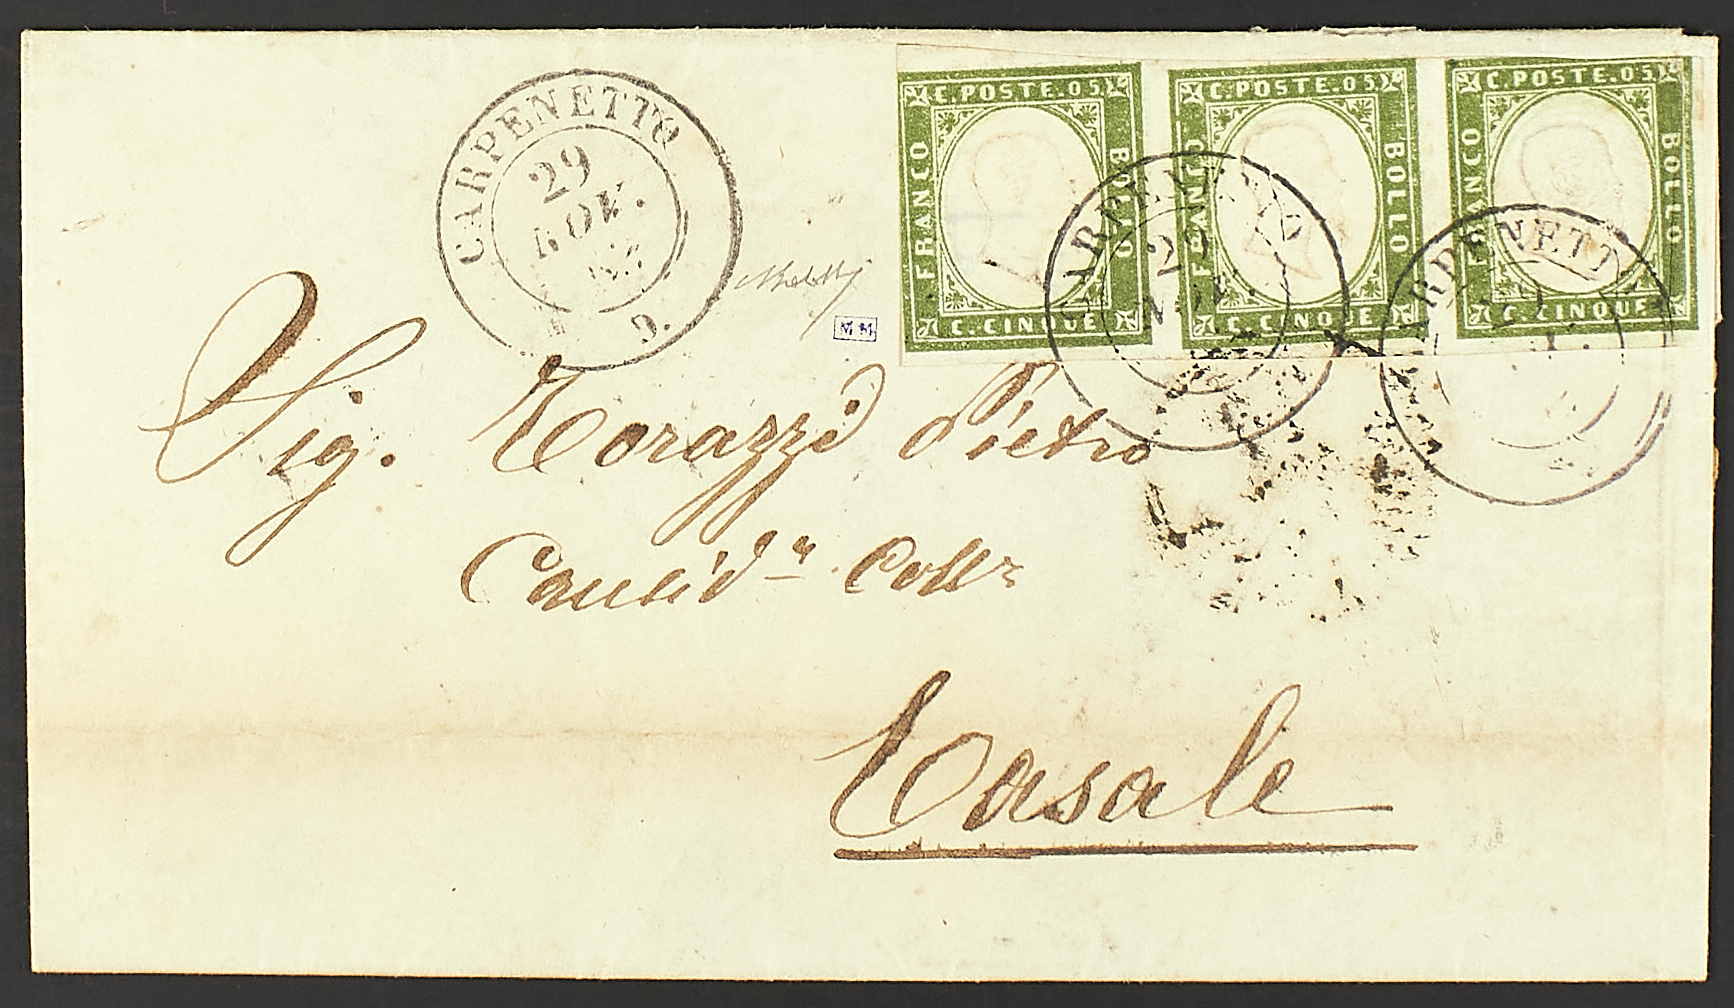 CARPENETTO
29
NOV.
9.
M M
C. POSTE. 05
FRANCO
BOLLO
C. CINQUE
C. POSTE. 05
FRANCO
BOLLO
C. CINQUE
C. POSTE. 05
FRANCO
BOLLO
C. CINQUE
CARPENETTO
29
NOV.
CARPENETTO
Sig. Torazzi Pietro
Causid.co Coll.o
Casale